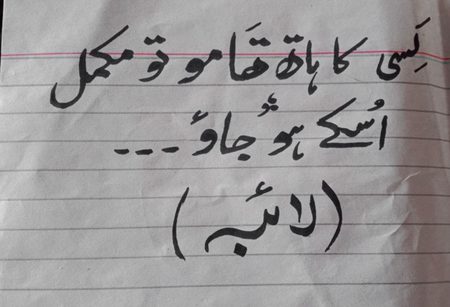 کسی کا ہاتھ تھامو تو مکمل
اُسکے ہو جاؤ ---
(لائبہ)